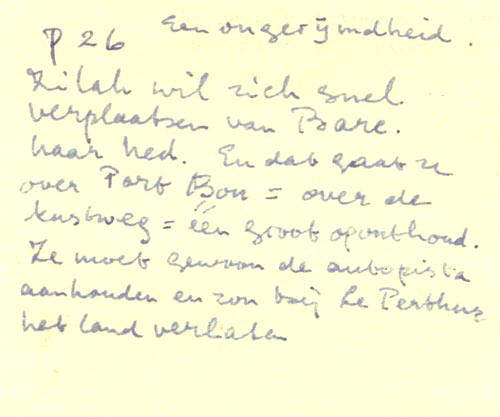 Een ongerijmdheid.
p 26
Zilah wil zich snel
verplaatsen van Barc.
naar Ned. En dat gaat ze
over Port Bou = over de
kustweg = één groot oponthoud.
Ze moet gewoon de autopista
aanhouden en zou bij Le Perthus
het land verlaten